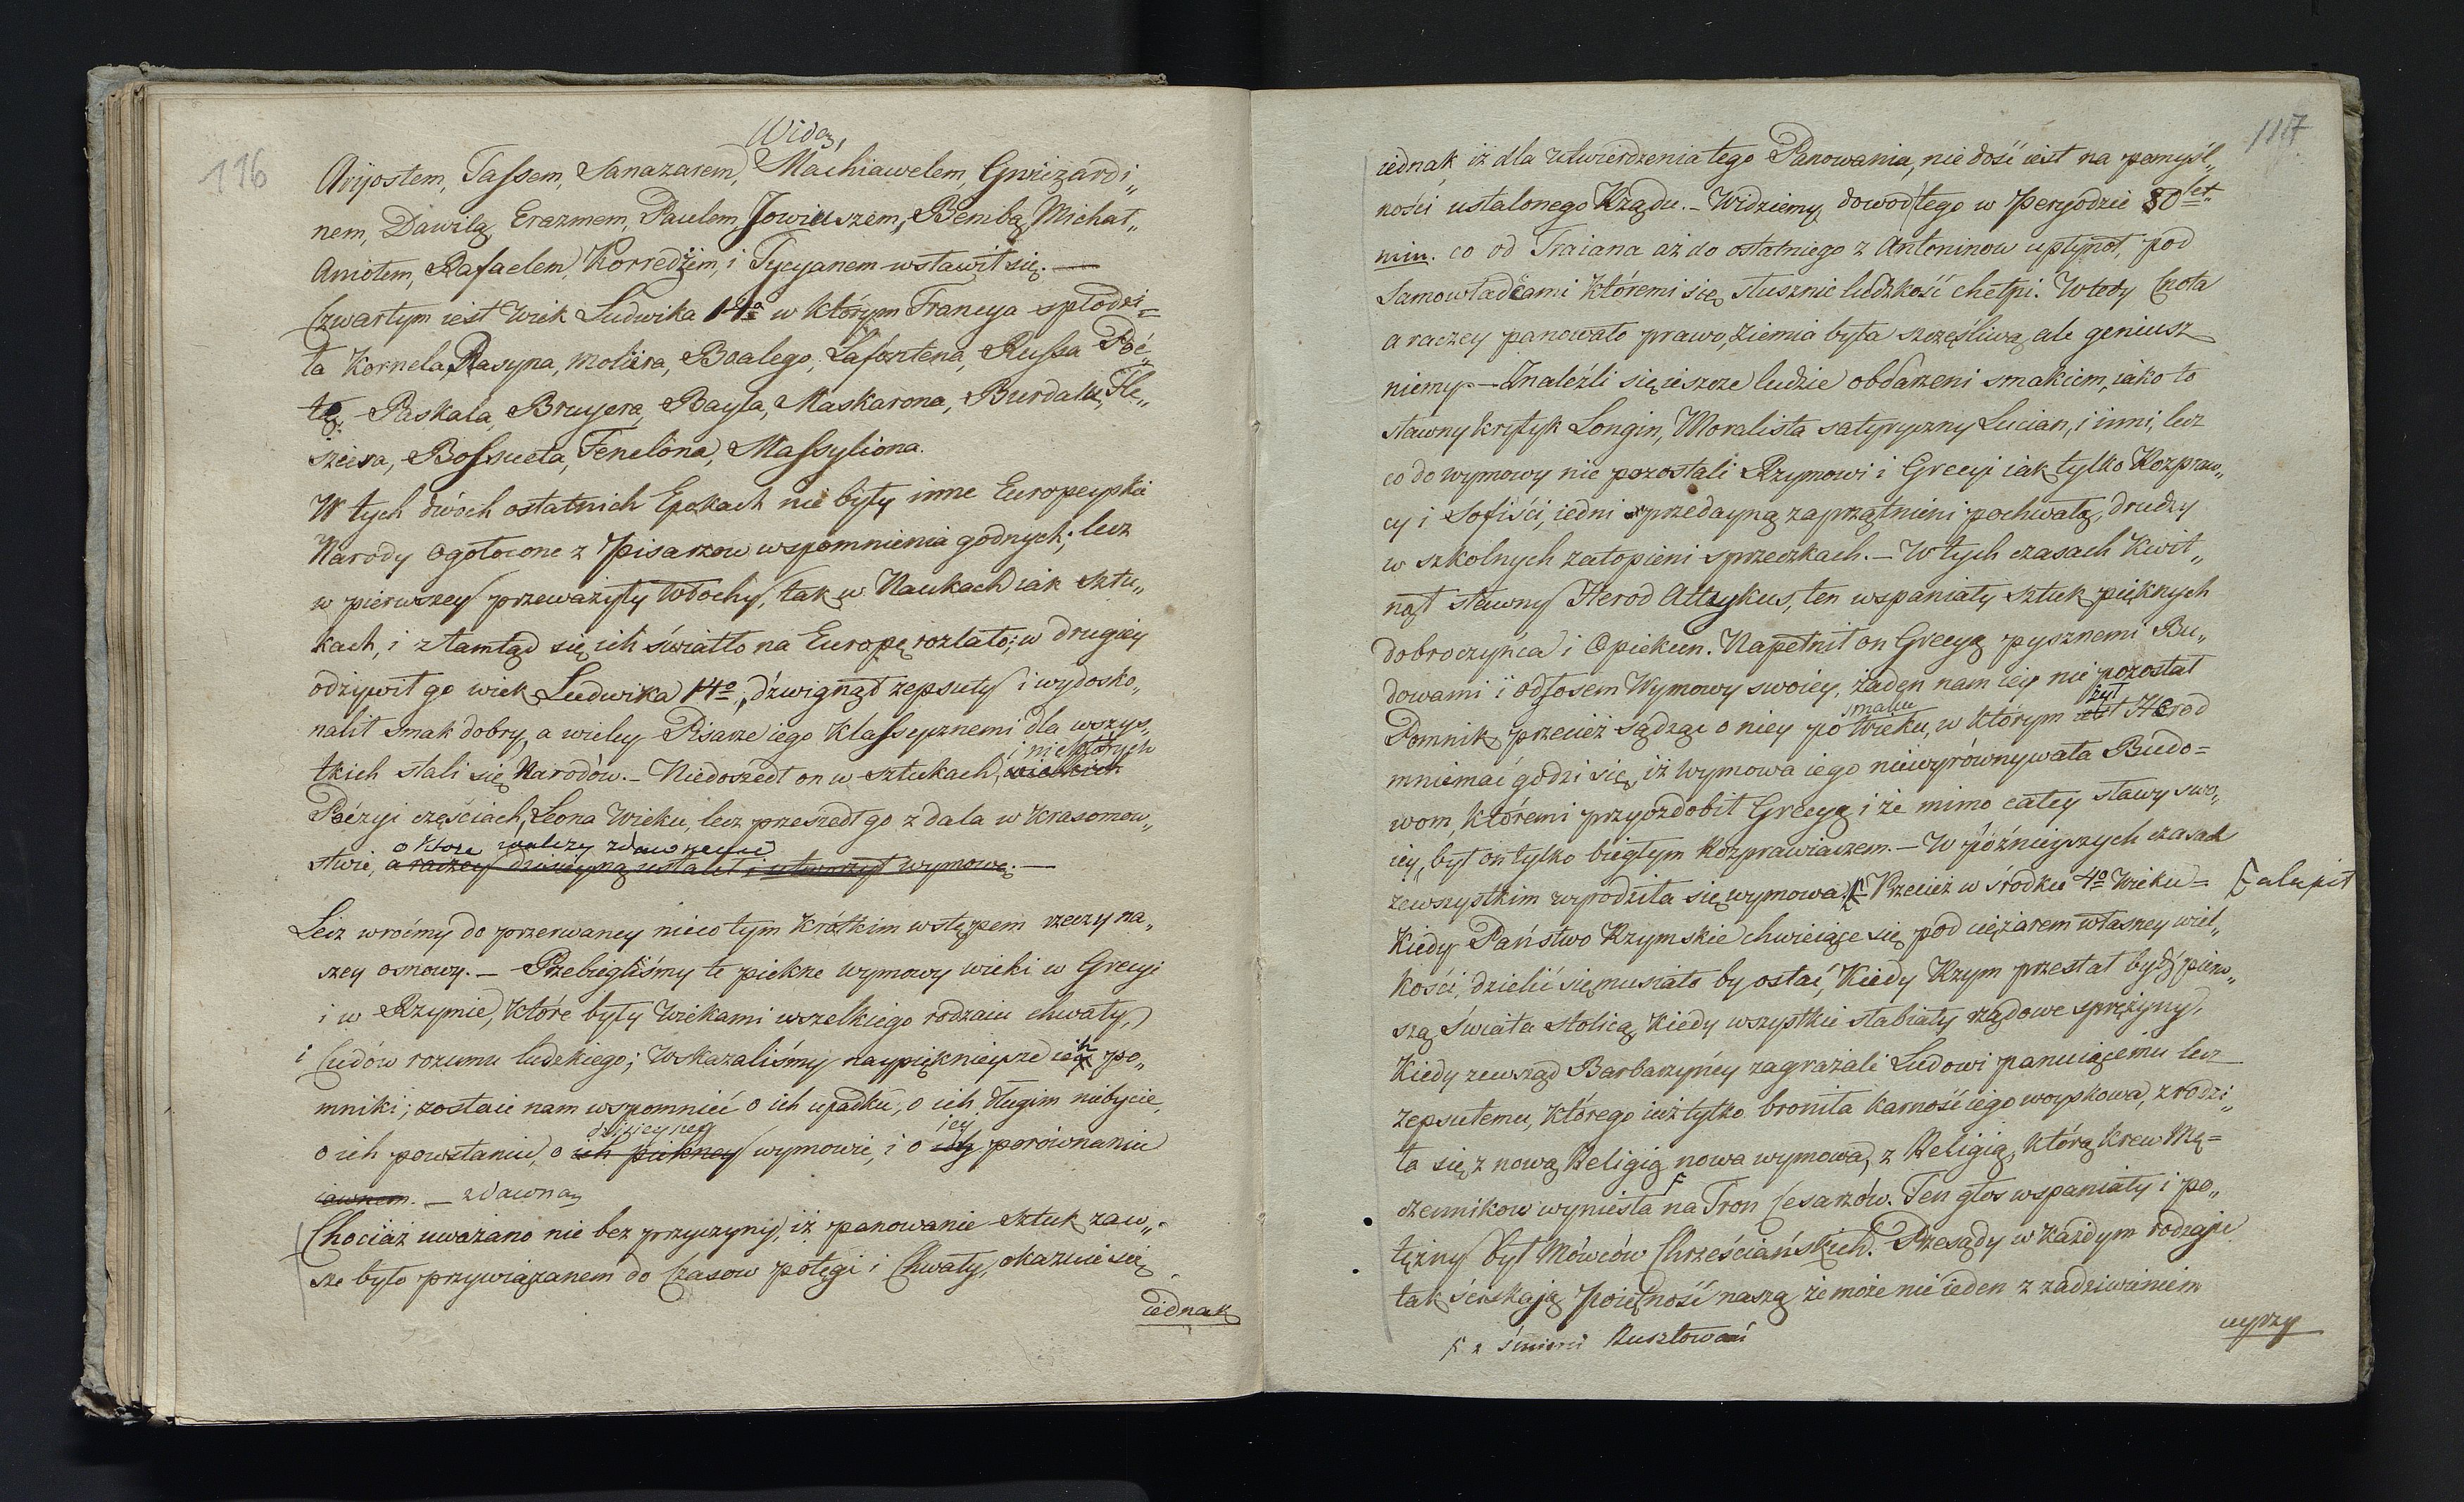 116
Widą,
Aryostem, Tassem, Sanazarem, Machiawelem, Gwiczardi„
nem, Dawilą, Erazmem, Paulem, Jowiuszem, Bembą, Michał„
Aniołem, Rafaelem, Korredżim, i Tycyanem wsławił się. —
Czwartym iest Wiek Ludwika 14º w którym Francya spłodzi=
ła Kornela, Rasyna, Moliera, Boalego, Lafontena, Russa Poé„
tę. Paskala, Bruyera, Bayla, Maskarona, Burdalu, Fle„
sziera, Bossueta, Fenelona, Massyliona.
W tych dwóch ostatnich Epokach nie były inne Europeyskie
Narody ogołocone z Pisarzow wspomnienia godnych; lecz
w pierwszey przeważyły Włochy, tak w Naukach iak Sztu„
kach, i ztamtąd się ich światło na Europę rozlało; w drugiey
odżywił go wiek Ludwika 14º, dźwignął zepsuty i wydosko„
nalił smak dobry, a wielcy Pisarze iego Klassycznemi dla wszys„
tkich stali się Narodów. — Niedoszedł on w sztukach, wielkich
i niektórych
Poézyi częściach, Leona Wieku, lecz przeszedł go z dala w Krasomow„
o ktore walczy zdawnemi
stwie, a raczey dzisieyszą ustalił i utworzył wymowę. —
Lecz wróćmy do przerwaney nieco tym krótkim wstępem rzeczy na„
szey osnowy. — Przebiegliśmy te piękne wymowy wieki w Grecyi
i w Rzymie, które były Wiekami wszelkiego rodzaiu chwały,
i Cudów rozumu ludzkiego; Wskazaliśmy naypięknieysze ich po„
mniki; zostaie nam wspomnieć o ich upadku, o ich długim niebycie,
dzisieyszey iey
o ich powstaniu, o ich piękney wymowie, i o ich porównaniu
zdawną
Chociaż uważano nie bez przyczyny, iż panowanie Sztuk zaw„
sze było przywiązanem do Czasow potęgi i Chwały, okazuie się
iednak
117
iednak iż dla utwierdzenia tego Panowania, nie dość iest na pomyśl„
ności ustalonego Rządu. — Widziemy dowod tego w Peryodzie 80let„
nim. co od Traiana aż do ostatniego z Antoninow upłynął, pod
Samowładcami któremi się słusznie ludzkość chełpi. Wtedy Cnota
a raczey panowało prawo, ziemia była szczęśliwą, ale geniusz
niemy. — Znaleźli się ieszcze ludzie obdarzeni smakiem, iako to
sławny krytyk Longin, Moralista satyryczny Lucian, i inni, lecz
co do wymowy nie pozostali Rzymowi i Grecyi iak tylko Rozpraw„
cy i Sofiści, iedni przedayną zaprzątnieni pochwałą, drudzy
w szkolnych zatopieni sprzeczkach. — W tych czasach Kwit„
nął sławny Herod Attykus, ten wspaniały sztuk pięknych
dobroczyńca i Opiekun. Napełnił on Grecyą pysznemi Bu„
dowami i odgłosem Wymowy swoiey, żaden nam iey nie pozostał
smaku żył
Pomnik, przecież sądząc o niey po Wieku, w którym Herod
mniemać godzi się, iż wymowa iego niewyrównywała Budo=
wom, któremi przyozdobił Grecyą, i że mimo całey sławy swo„
iey, był on tylko biegłym Rozprawiaczem. — W późnieyszych czasach
zewszystkim wyrodziła się wymowa. Przecież w środku 4º Wieku =
Kiedy Państwo Rzymskie chwieiące się pod ciężarem własney wiel„
kości, dzielić się musiało by ostać, Kiedy Rzym przestał być pierw„
szą świata stolicą, kiedy wszystkie słabiały rządowe sprężyny,
Kiedy zewsząd Barbarzyńcy zagrażali Ludowi panuiącemu lecz
zepsutemu, którego iuż tylko broniła karność iego woyskowa, zrodzi„
ła się z nową Religią nowa wymowa, z Religią, którą krew Mę=
czennikow wyniosła na Tron Cesarzów. Ten głos wspaniały i po„
tężny był Mówców Chrześciańskich. Przesądy w każdym rodzaju
tak ściskają Poiętność naszą że może nie ieden z zadziwieniem
uyrzy